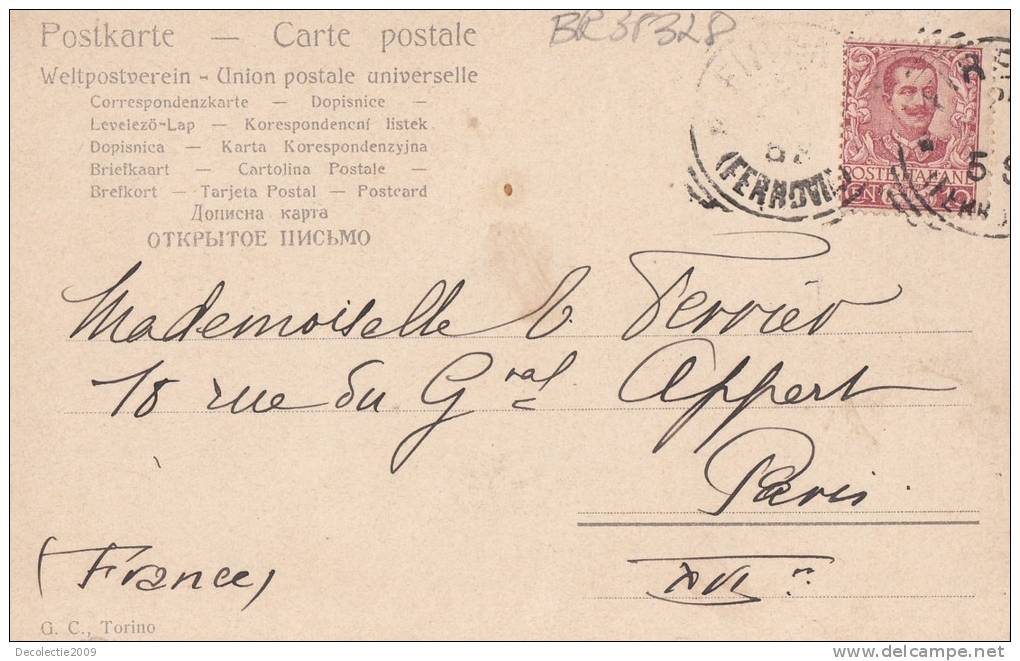 BR38328
Postkarte — Carte postale
Weltpostverein - Union postale universelle
Correspondenzkarte — Dopisnice —
Levelező-Lap — Korespondencní listek
Dopisnica — Karta Korespondenzyjna
Briefkaart — Cartolina Postale —
Brefkort — Tarjeta Postal — Postcard
Дописна карта
ОТКРЫТОЕ ПИСЬМО
(FERROVIA)
POSTE ITALIANE
Mademoiselle C. Ferrier
18 rue du Gral Appert
Paris
XVIe
(France)
G. C., Torino
Decolectie2009
delcampe.net